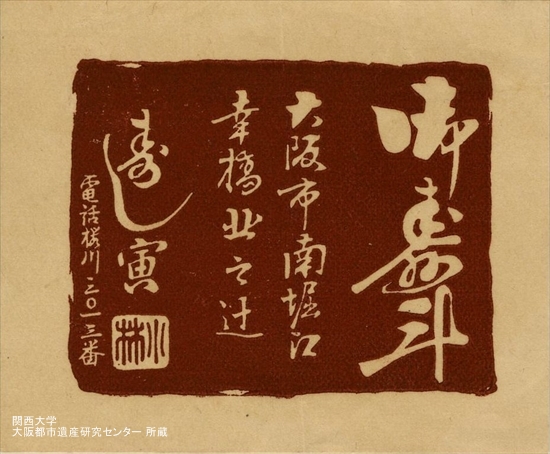 御壽斗
大阪市南堀江
幸橋北之辻
壽し寅
電話桜川二〇一三番
小林
関西大学
大阪都市遺産研究センター 所蔵